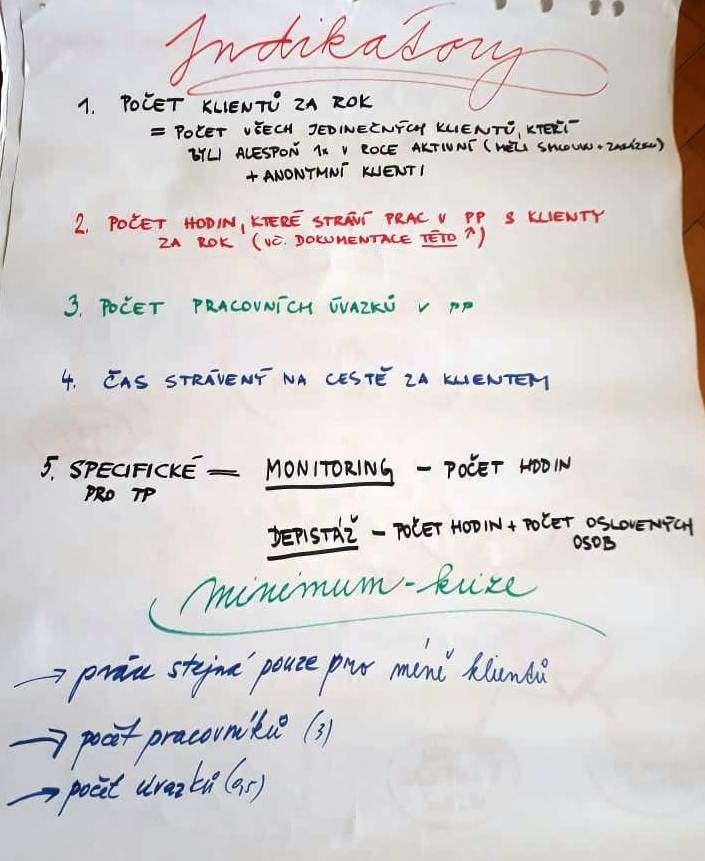 Indikátory
1. POČET KLIENTŮ ZA ROK
= POČET VŠECH JEDINEČNÝCH KLIENTŮ, KTEŘÍ
BYLI ALESPOŇ 1x V ROCE AKTIVNÍ (MĚLI SMLOUVU + ZAKÁZKU)
+ ANONYMNÍ KLIENTI
2. POČET HODIN, KTERÉ STRÁVÍ PRAC V PP S KLIENTY
ZA ROK (VČ. DOKUMENTACE TÉTO ↑)
3. POČET PRACOVNÍCH ÚVAZKŮ V PP
4. ČAS STRÁVENÝ NA CESTĚ ZA KLIENTEM
5. SPECIFICKÉ = MONITORING - POČET HODIN
PRO TP
DEPISTÁŽ - POČET HODIN + POČET OSLOVENÝCH
OSOB
minimum - krize
→ práce stejná pouze pro méně klientů
→ počet pracovníků (3)
→ počet úvazků (0,5)